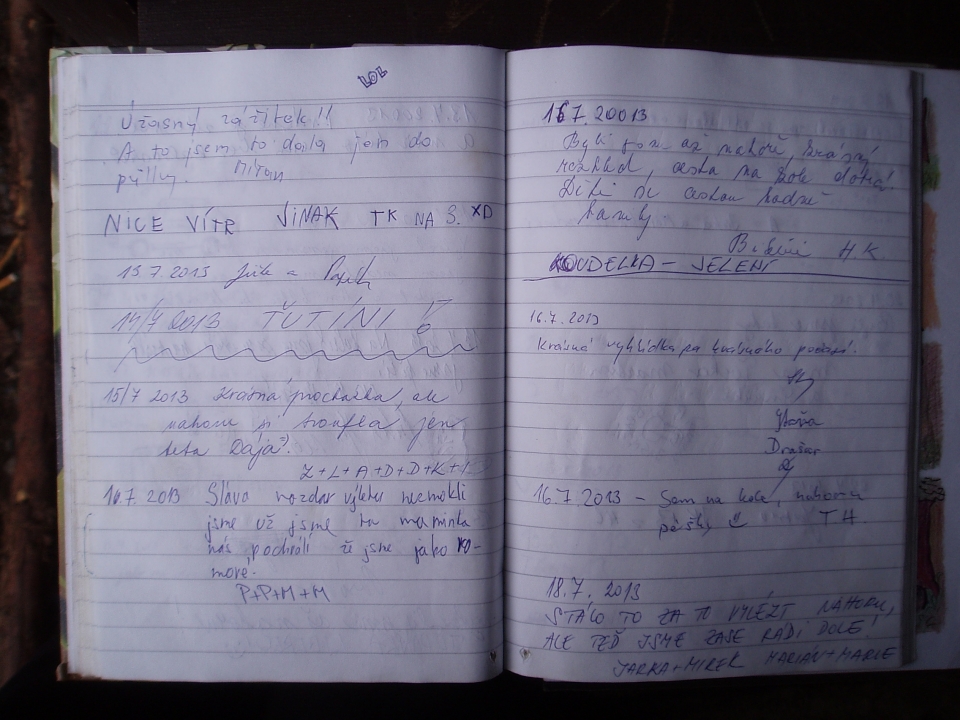 LOL
Úžasný zážitek!!
A to jsem to dala jen do
půlky.
NICE VÍTR JINAK TK NA S. XD
15.7 2013 a
14/7 2013 ŤUŤÍNI
15/7 2013 Krásná procházka, ale
nahoru si troufla jen
teta Dája.
Z+L+A+D+D+K+
16.7. 2013 Sláva nazdar výletu nezmokli
jsme už jsme tu maminka
nás pochválí že jsme jako ko-
mové.
P+P+M+M
16.7. 20013
Byli jsme až nahoře, krásný
rozhled, cesta na kole dobrá.
Děti se cestou
H.K.
KOUDELKA – JELENI
16.7. 2013
Krásná vyhlídka za krásného počasí.
Drašar
16.7.2013 – Sem na kole, nahoru
pěšky T.H.
18.7. 2013
STÁLO TO ZA TO VYLÉZT NAHORU,
ALE TEĎ JSME ZASE RÁDI DOLE!
JARKA+MIREK MARIÁN+MARIE